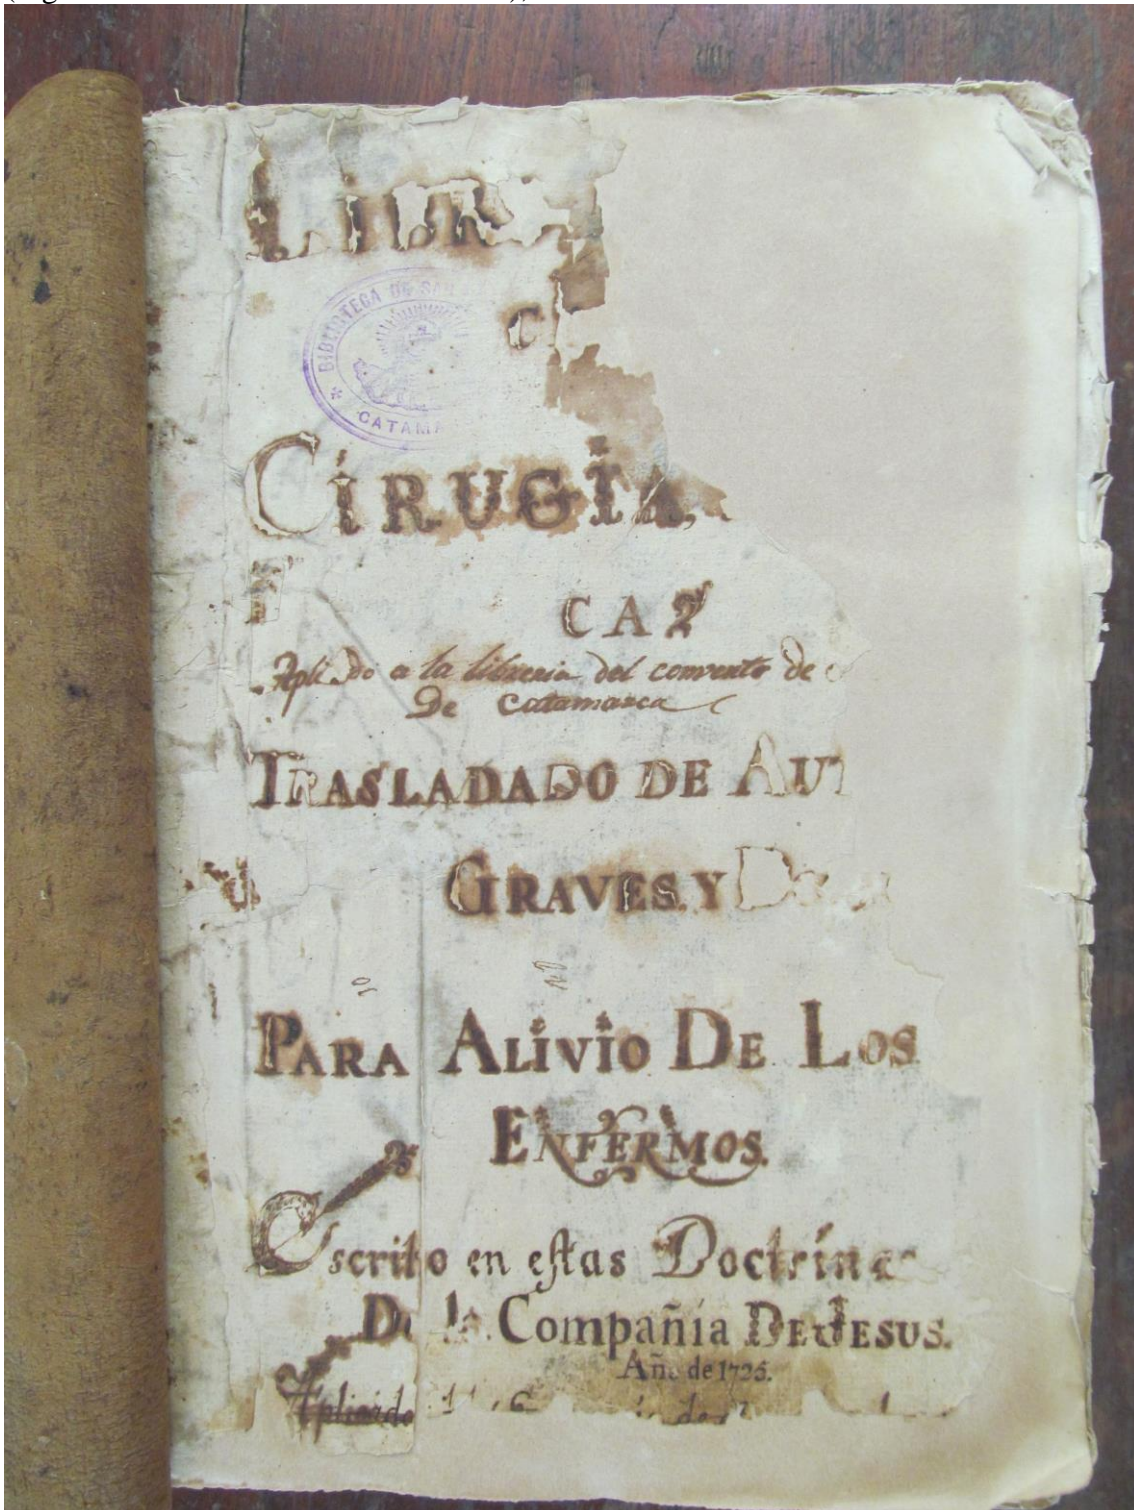 LIBR
BIBLIOTECA DE SAN
CATAMA
CIRUGIA
CA
a la libreria del convento de
De Catamarca
TRASLADADO DE AUT
GRAVES. Y
PARA ALIVIO DE LOS
ENFERMOS.
Escrito en estas Doctrinas
De la Compañia DE JESUS.
Año de 1725.
Aplicado